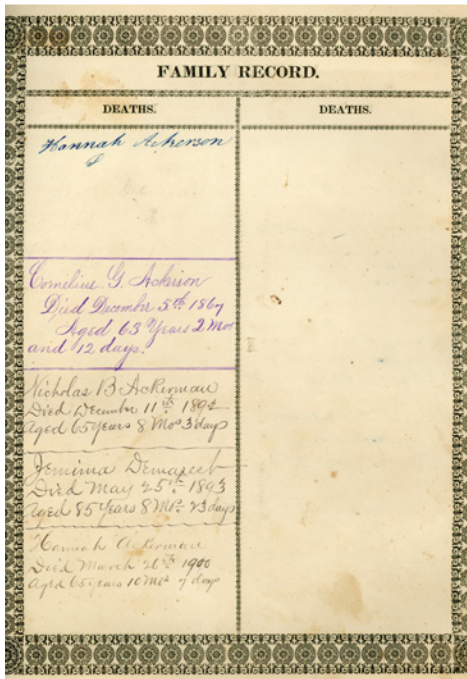 FAMILY RECORD.
DEATHS.
Hannah Ackerson
Cornelius G. Ackerson
Died December 5th. 1867
Aged 63 Years 2 Mos
and 12 days.
Nicholas B Ackerman
Died December 11th 1892
Aged 65 years 8 Mos 3 days
Jemima Demarest
Died May 25th. 1893
Aged 85 Years 8 Mos. 23 days
Hannah Ackerman
Died March 26th 1900
Aged 65 years 10 Mos 7 days
DEATHS.